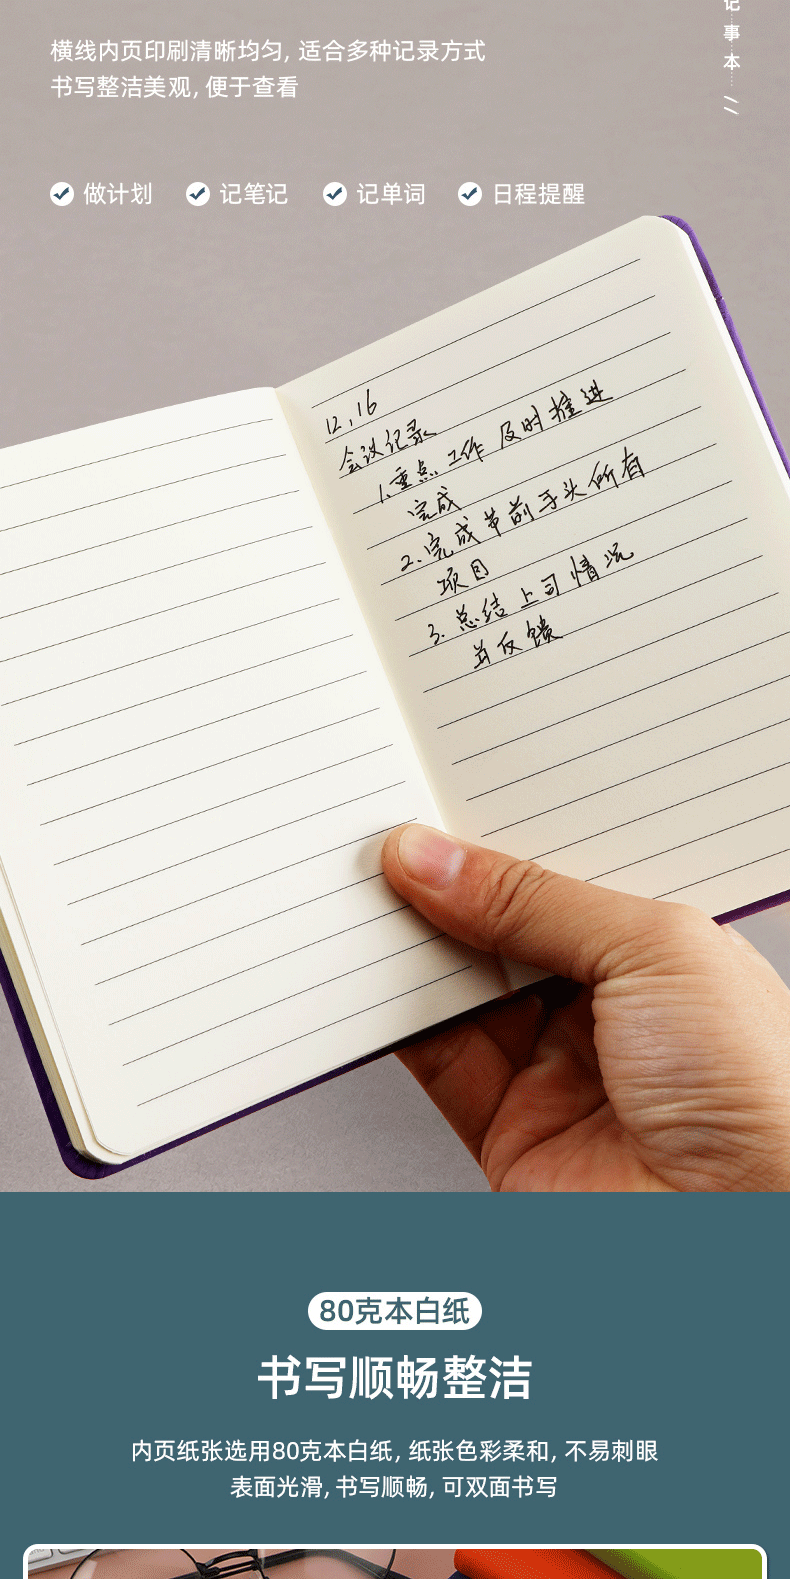 记
事
本
横线内页印刷清晰均匀, 适合多种记录方式
书写整洁美观, 便于查看
做计划 记笔记 记单词 日程提醒
12.16
会议记录
1.重点工作及时推进
完成
2.完成节前手头所有
项目
3.总结上司情况
并反馈
80克本白纸
书写顺畅整洁
内页纸张选用80克本白纸, 纸张色彩柔和, 不易刺眼
表面光滑, 书写顺畅, 可双面书写